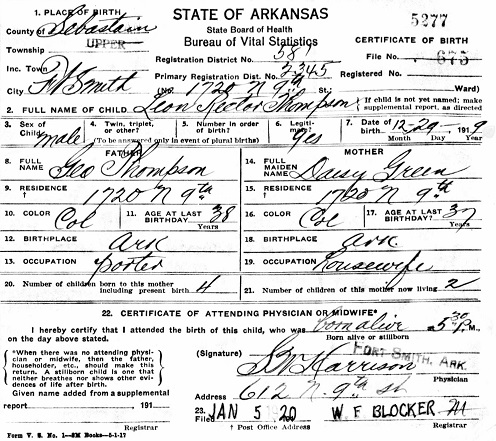 1. PLACE OF BIRTH
STATE OF ARKANSAS
5277
County of Sebastain
State Board of Health
UPPER
Bureau of Vital Statistics
CERTIFICATE OF BIRTH
Township
Registration District No. 581
File No. 675
Inc. Town
Primary Registration Dist. No. 2345
Registered No.
City Ft Smith (No. 1720 N 9th St.; Ward)
2. FULL NAME OF CHILD Leon Rector Thompson { If child is not yet named; make supplemental report, as directed
3. Sex of Child male
4. Twin, triplet, or other?
5. Number in order of birth?
6. Legitimate? Yes
7. Date of birth. 12-29 1919
(To be answered only in event of plural births)
Month Day Year
FATHER
MOTHER
8. FULL NAME Geo Thompson
14. FULL MAIDEN NAME Daisy Green
9. RESIDENCE † 1720 N 9th
15. RESIDENCE † 1720 N 9th
10. COLOR Col
11. AGE AT LAST BIRTHDAY. 38 Years
16. COLOR Col
17. AGE AT LAST BIRTHDAY? 37 Years
12. BIRTHPLACE Ark
18. BIRTHPLACE Ark
13. OCCUPATION porter
19. OCCUPATION Housewife
20. Number of children born to this mother including present birth 4
21. Number of children of this mother now living 2
22. CERTIFICATE OF ATTENDING PHYSICIAN OR MIDWIFE*
I hereby certify that I attended the birth of this child, who was born alive at 5 30 M
on the day above stated.
Born alive or stillborn
*When there was no attending physician or midwife, then the father, householder, etc., should make this return. A stillborn child is one that neither breathes nor shows other evidences of life after birth.
(Signature) Harrison
FORT SMITH, ARK.
Physician
Address 612 N. 9th St
Given name added from a supplemental
report 191
Registrar
23. JAN 5 1920 W F BLOCKER M
† Post Office Address
Registrar
Form V. S. No. 1—2M Books—5-1-17